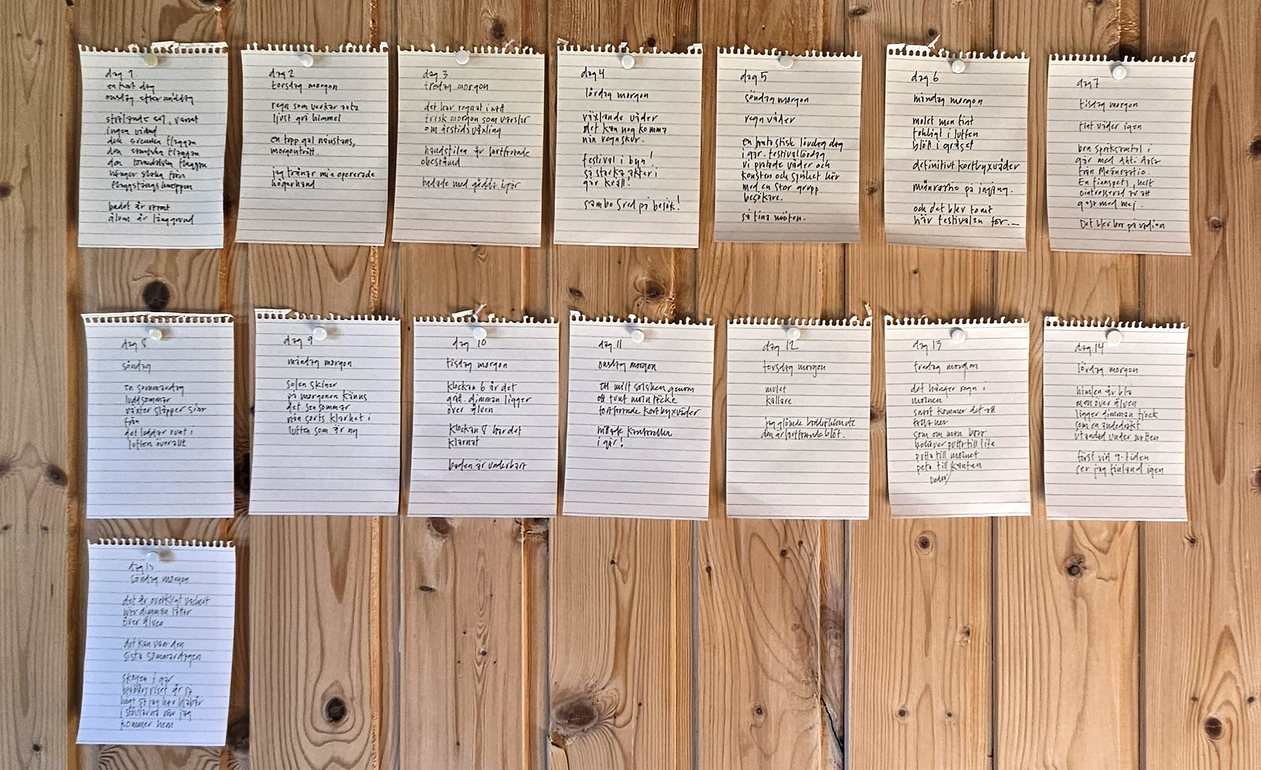 dag 1
en het dag
onsdag eftermiddag
strålande sol, varmt
ingen vind
den svenska flaggan
den samiska flaggan
den tornedalska flaggan
hänger slaka från
flaggstångsknoppen
badet är varmt
älven är långgrund
dag 2
torsdag morgon
regn som verkar sota
ljust grå himmel
en tupp gal någstans,
morgontrött
jag tränar min opererade
högerhand
dag 3
fredag morgon
det har regnat i natt
frisk morgon som varslar
om årstidsväxling
handstilen är fortfarande
obestämd
metade med gädda igår
dag 4
lördag morgon
växlande väder
det kan nog komma
nån regnskur.
festival i byn!
så starka akter i
går kväll!
sambo Fred på besök!
dag 5
söndag morgon
regnväder
en fantastisk lördag dag
i går. festivaldag
vi pratade väder och
konsten och språket här
med en stor grupp
besökare.
så fina möten.
dag 6
måndag morgon
mulet men fint
fuktigt i luften
blött i gräset
definitivt kortbyxväder
på ingång.
och det blev tomt
när festivalen för.—
dag 7
tisdag morgon
fint väder igen
bra språksamtal i
går med
från
En finsspråk helt
ointresserad av att
gå med mig.
Det blev bra på radion
dag 8
söndag
en sommardag
luddsommar
växter släpper sina
frön
det luddar runt i
luften överallt
dag 9
måndag morgon
solen skiner
på morgonen känns
det sensommar
nån sorts klarhet i
luften som är ny
dag 10
tisdag morgon
klockan 6 är det
grå. dimman ligger
över älven
klockan 8 har det
klarnat
boden är underbar
dag 11
onsdag morgon
ett milt solsken genom
ett tunt molntäcke
fortfarande kortbyxväder
målade kontrollen
i går!
dag 12
torsdag morgon
mulet
kallare
jag glömde badhandduken ute
den är fortfarande blöt.
dag 13
fredag morgon
det hänger regn i
molnen
snart kommer det att
falla ner
som om man bara
behöver putta till lite
putta till molnet
peta till kanten
under
dag 14
lördag morgon
himlen är blå
men över älven
ligger dimman tjock
som en andedräkt
utandad under natten
först vid 9-tiden
ser jag Finland igen
dag 15
söndag morgon
det är overkligt vackert
när dimman lättar
över älven
det kan vara den
sista sommardagen
skogen i går
blåbärsriset är så
högt så jag har blåbär
i stövlarna när jag
kommer hem